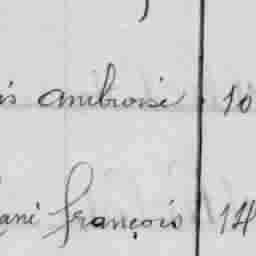 is ambroise 10
ané françois 14